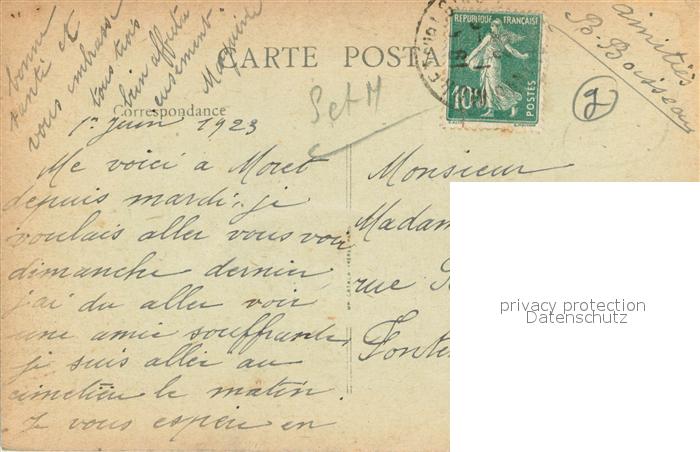 bonne
santé et
vous embrasse
tous trois
bien affectu
eusement.
amitiés
B. Boisseau
CARTE POSTA
RÉPUBLIQUE FRANÇAISE
10c
POSTES
Correspondance
S et M
1er Juin 1923
Me voici a Moret
depuis mardi, je
voulais aller vous voir
dimanche dernier
j'ai du aller voir
une amie souffrante,
je suis allée au
cimetière le matin.
Je vous espère en
Monsieur
Madam
rue
Fonte
privacy protection
Datenschutz